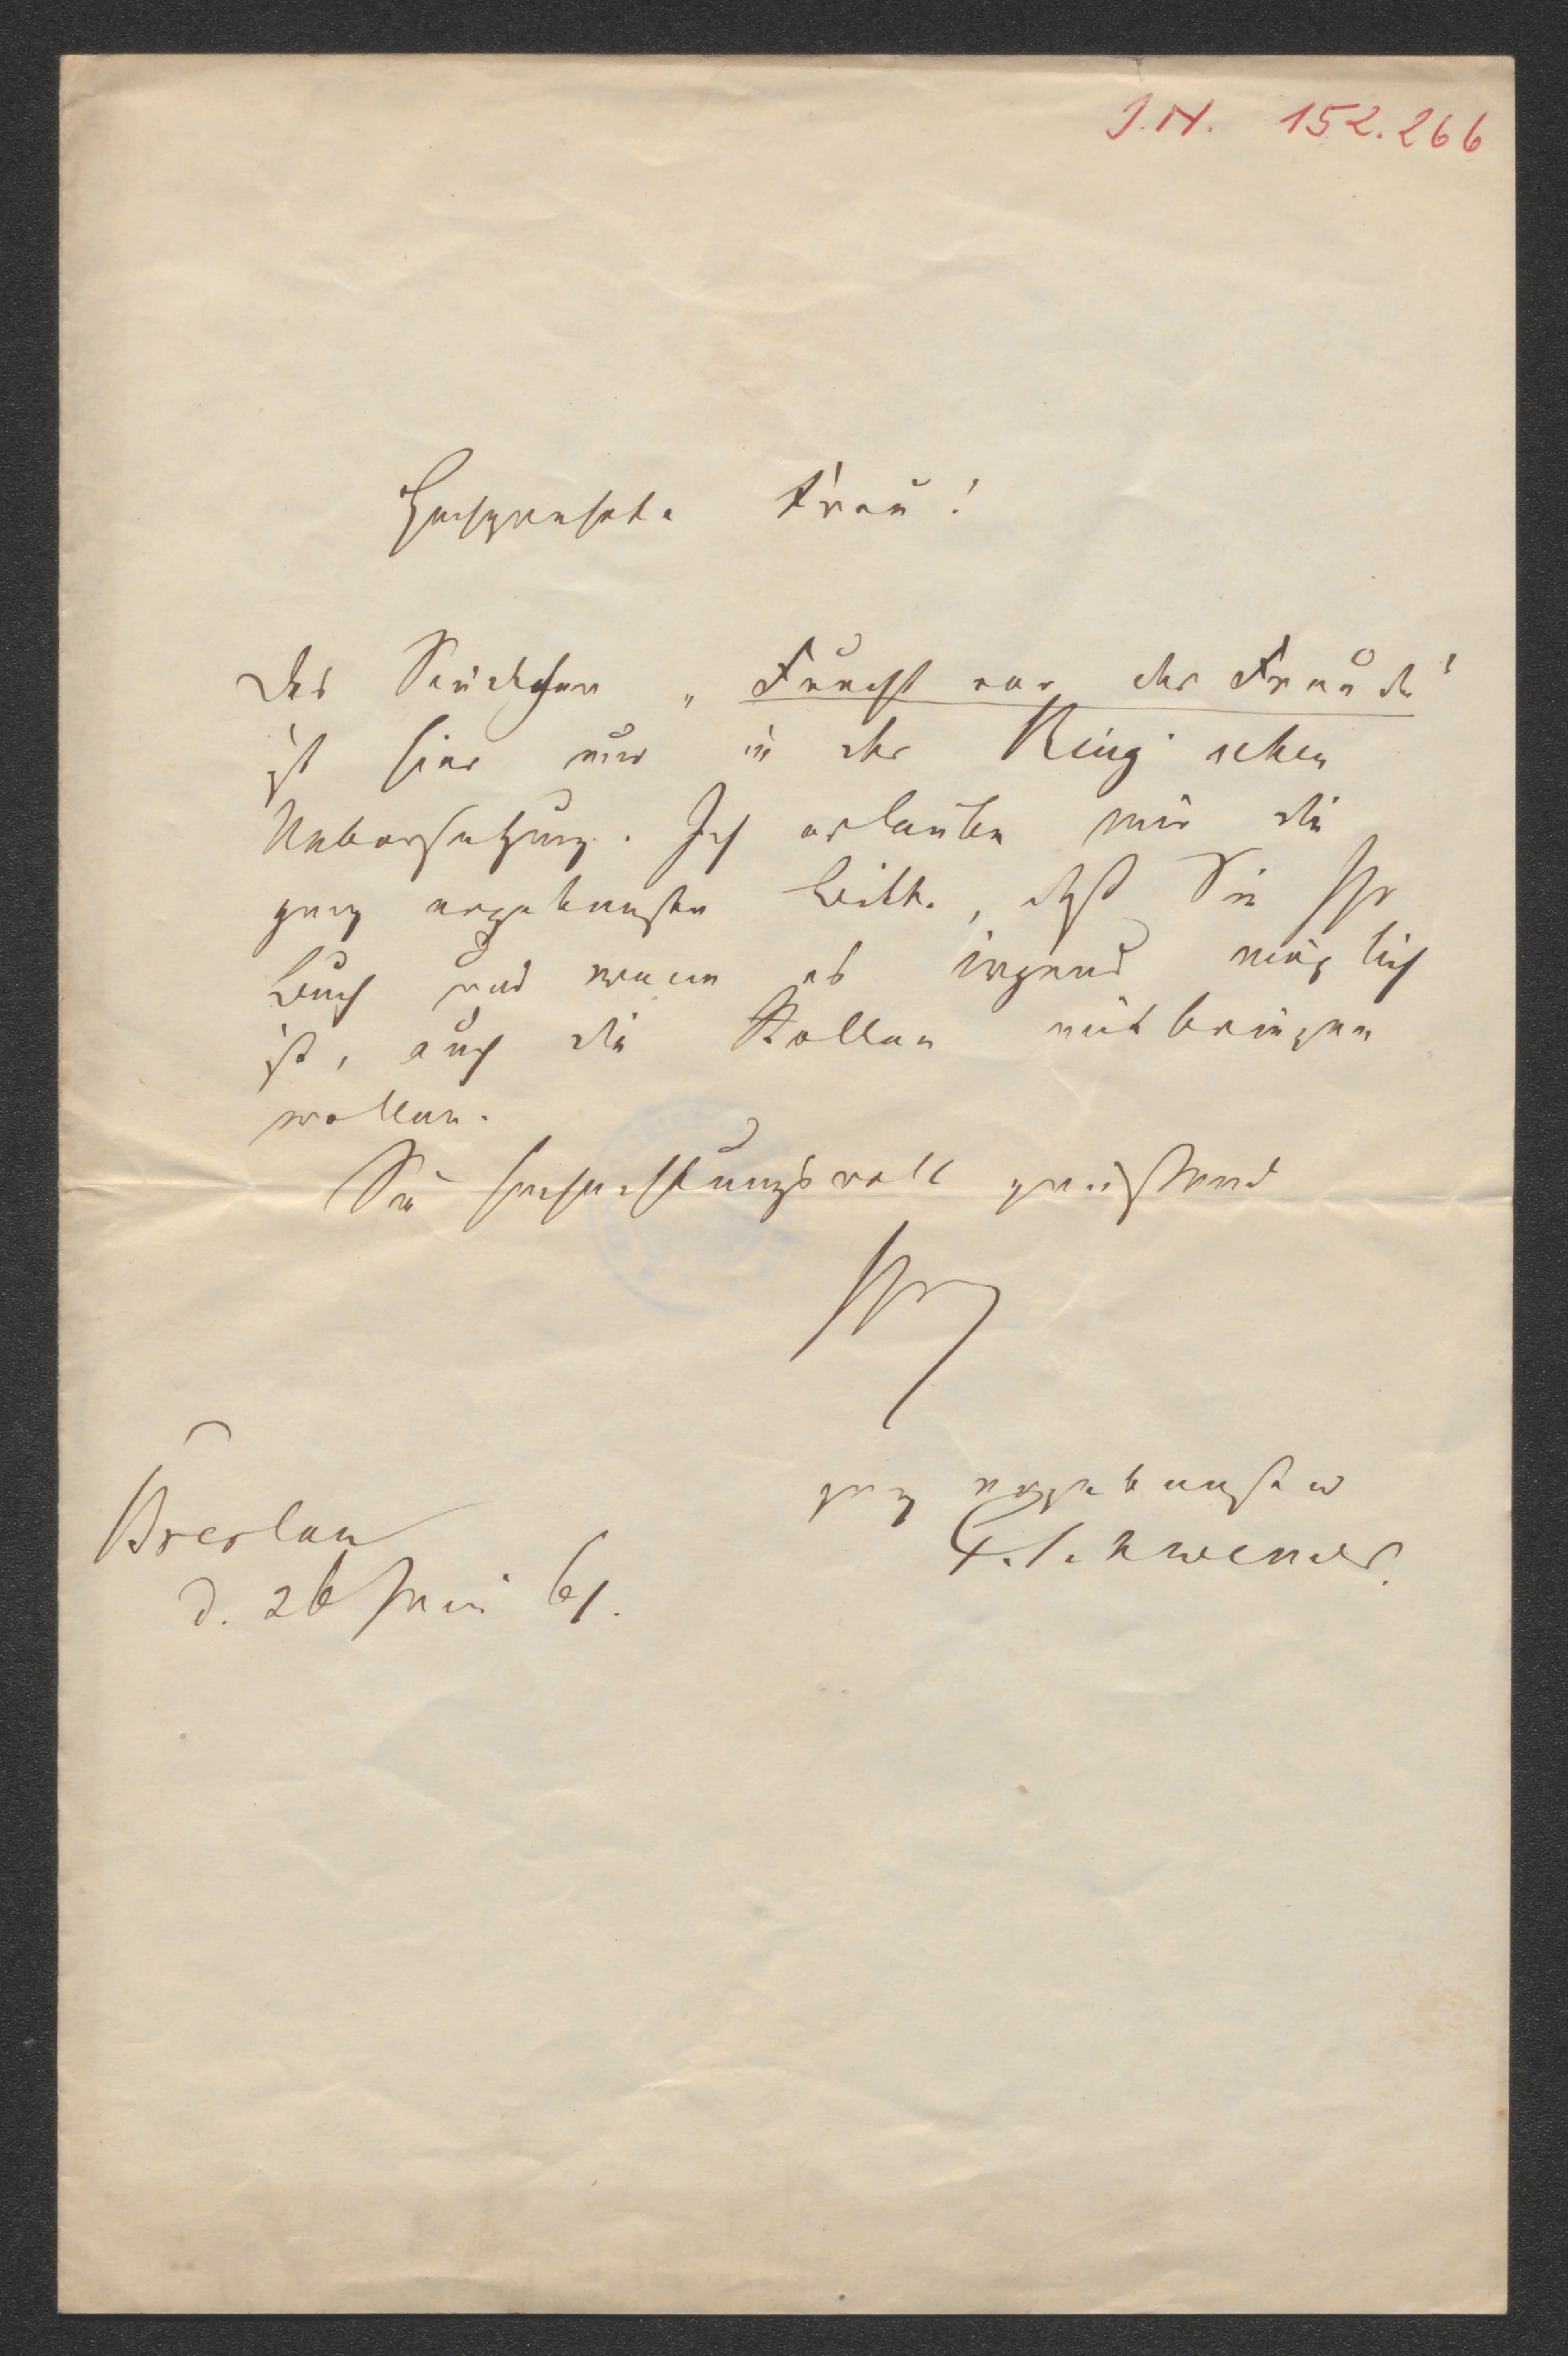 J.N. 152.266
Hochgeehrte Frau!
Das Stückchen „Furcht vor der Freude"
ist hier nur in der Ring'schen
Uebersetzung. Ich erlaube mir die
ganz ergebenste Bitte, daß Sie Ihr
Buch und wenn es irgend möglich
ist, auch die Rollen mitbringen
wollen.
Sie hochachtungsvoll grüßend
Ihr
ganz ergebenster
Schwemer
Breslau
d. 26 Juni 61.